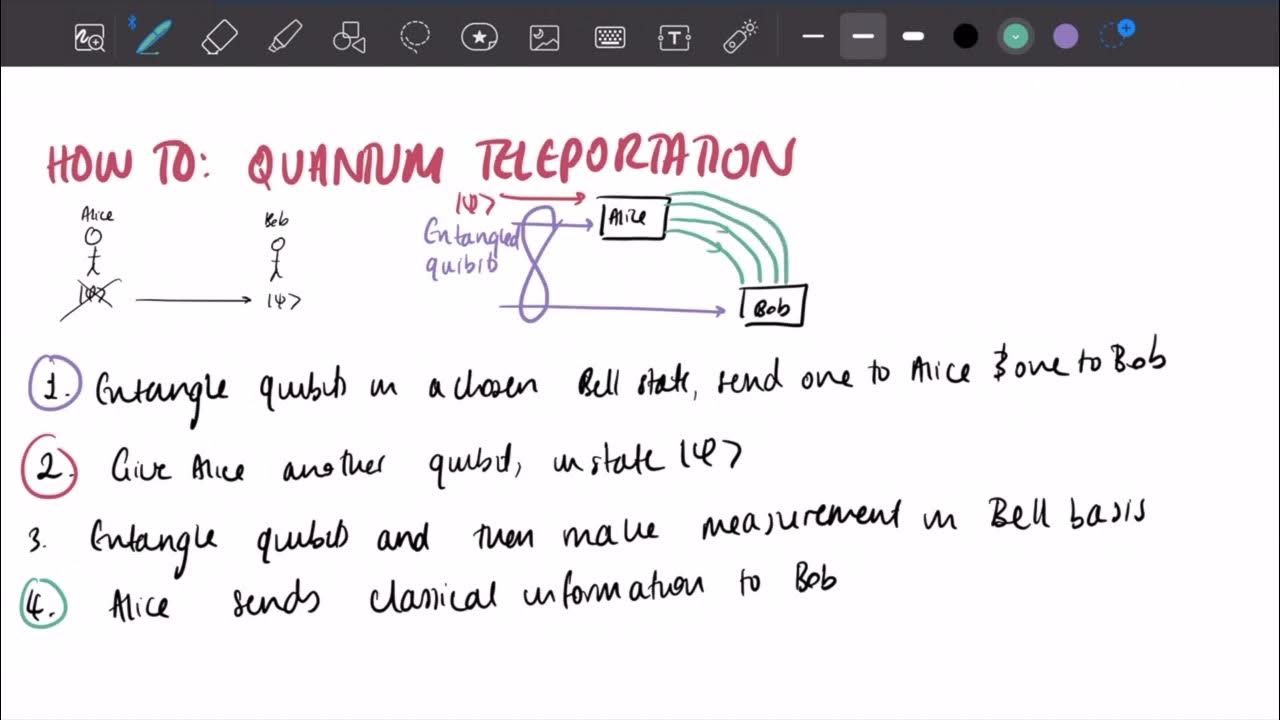 HOW TO: QUANTUM TELEPORTATION
Alice
Bob
|ψ>
|ψ>
|ψ>
Entangled
quibit
Alice
Bob
1. Entangle quibits in a chosen Bell state, send one to Alice & one to Bob
2. Give Alice another quibit, in state |ψ>
3. Entangle quibits and then make measurement in Bell basis
4. Alice sends classical information to Bob